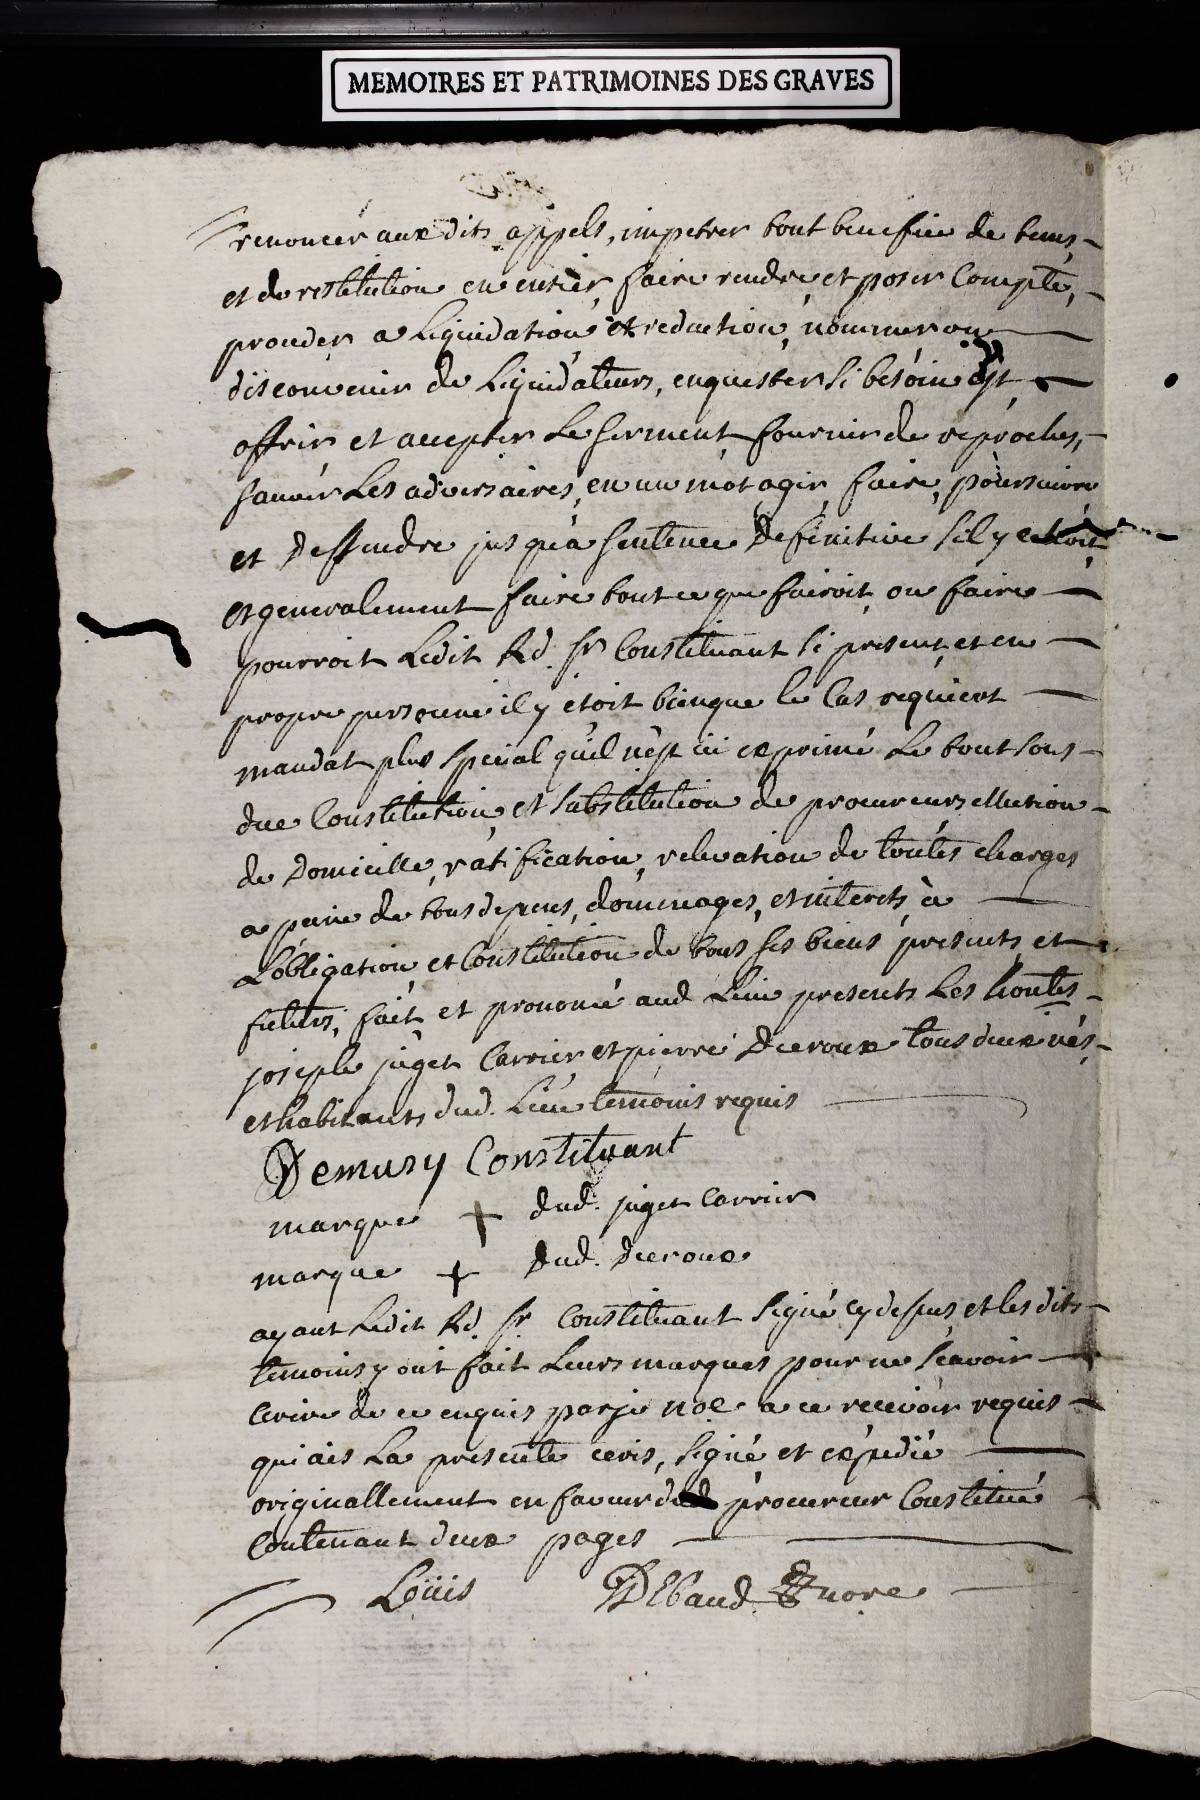 MEMOIRES ET PATRIMOINES DES GRAVES
renoncer aux dits appels, impetrer tout benefice de tems
et de restitution en entier, faire rendre, et poser Compte,
proceder a Liquidation et reduction, nommer ou
disconvenir de Liquidateurs, enquester si besoin est,
offrir et accepter Le serment fournir de reproches,
sauver Les adversaires, en un mot agir, faire, poursuivre
et deffendre jusqu'a sentence definitive s'il y echoit
et generalement faire tout ce que fairoit, ou faire
pourroit Ledit Rd. sr. Constituant si present, et en
propre personne il y étoit bienque le Cas requiert
mandat plus special qu'il n'est ici exprimé Le tout sous
due Constitution, et substitution de procureurs ellection
de Domicille, ratification, relevation de toutes charges
a peine de tous depens, dommages, et interets, à
L'obligation et Constitution de tous ses biens presents, et
futurs, fait, et prononcé aud. Lieu presents Les hontes
joseph juget Carrier et pierre Ducroux tous deux nés,
et habitants dud. Lieu temoins requis
Demusy Constituant
marque + dud. juget Carrier
marque + Dud. Ducroux
ayant Ledit Rd. sr. Constituant signé cy dessus, et les dits
temoins y ont fait Leurs marques pour ne scavoir
écrire de ce enquis par je noe a ce recevoir requis
qui ais La presente ecris, signé et expedié
originallement en faveur dud procureur Constitué
Contenant deux pages
Loüis